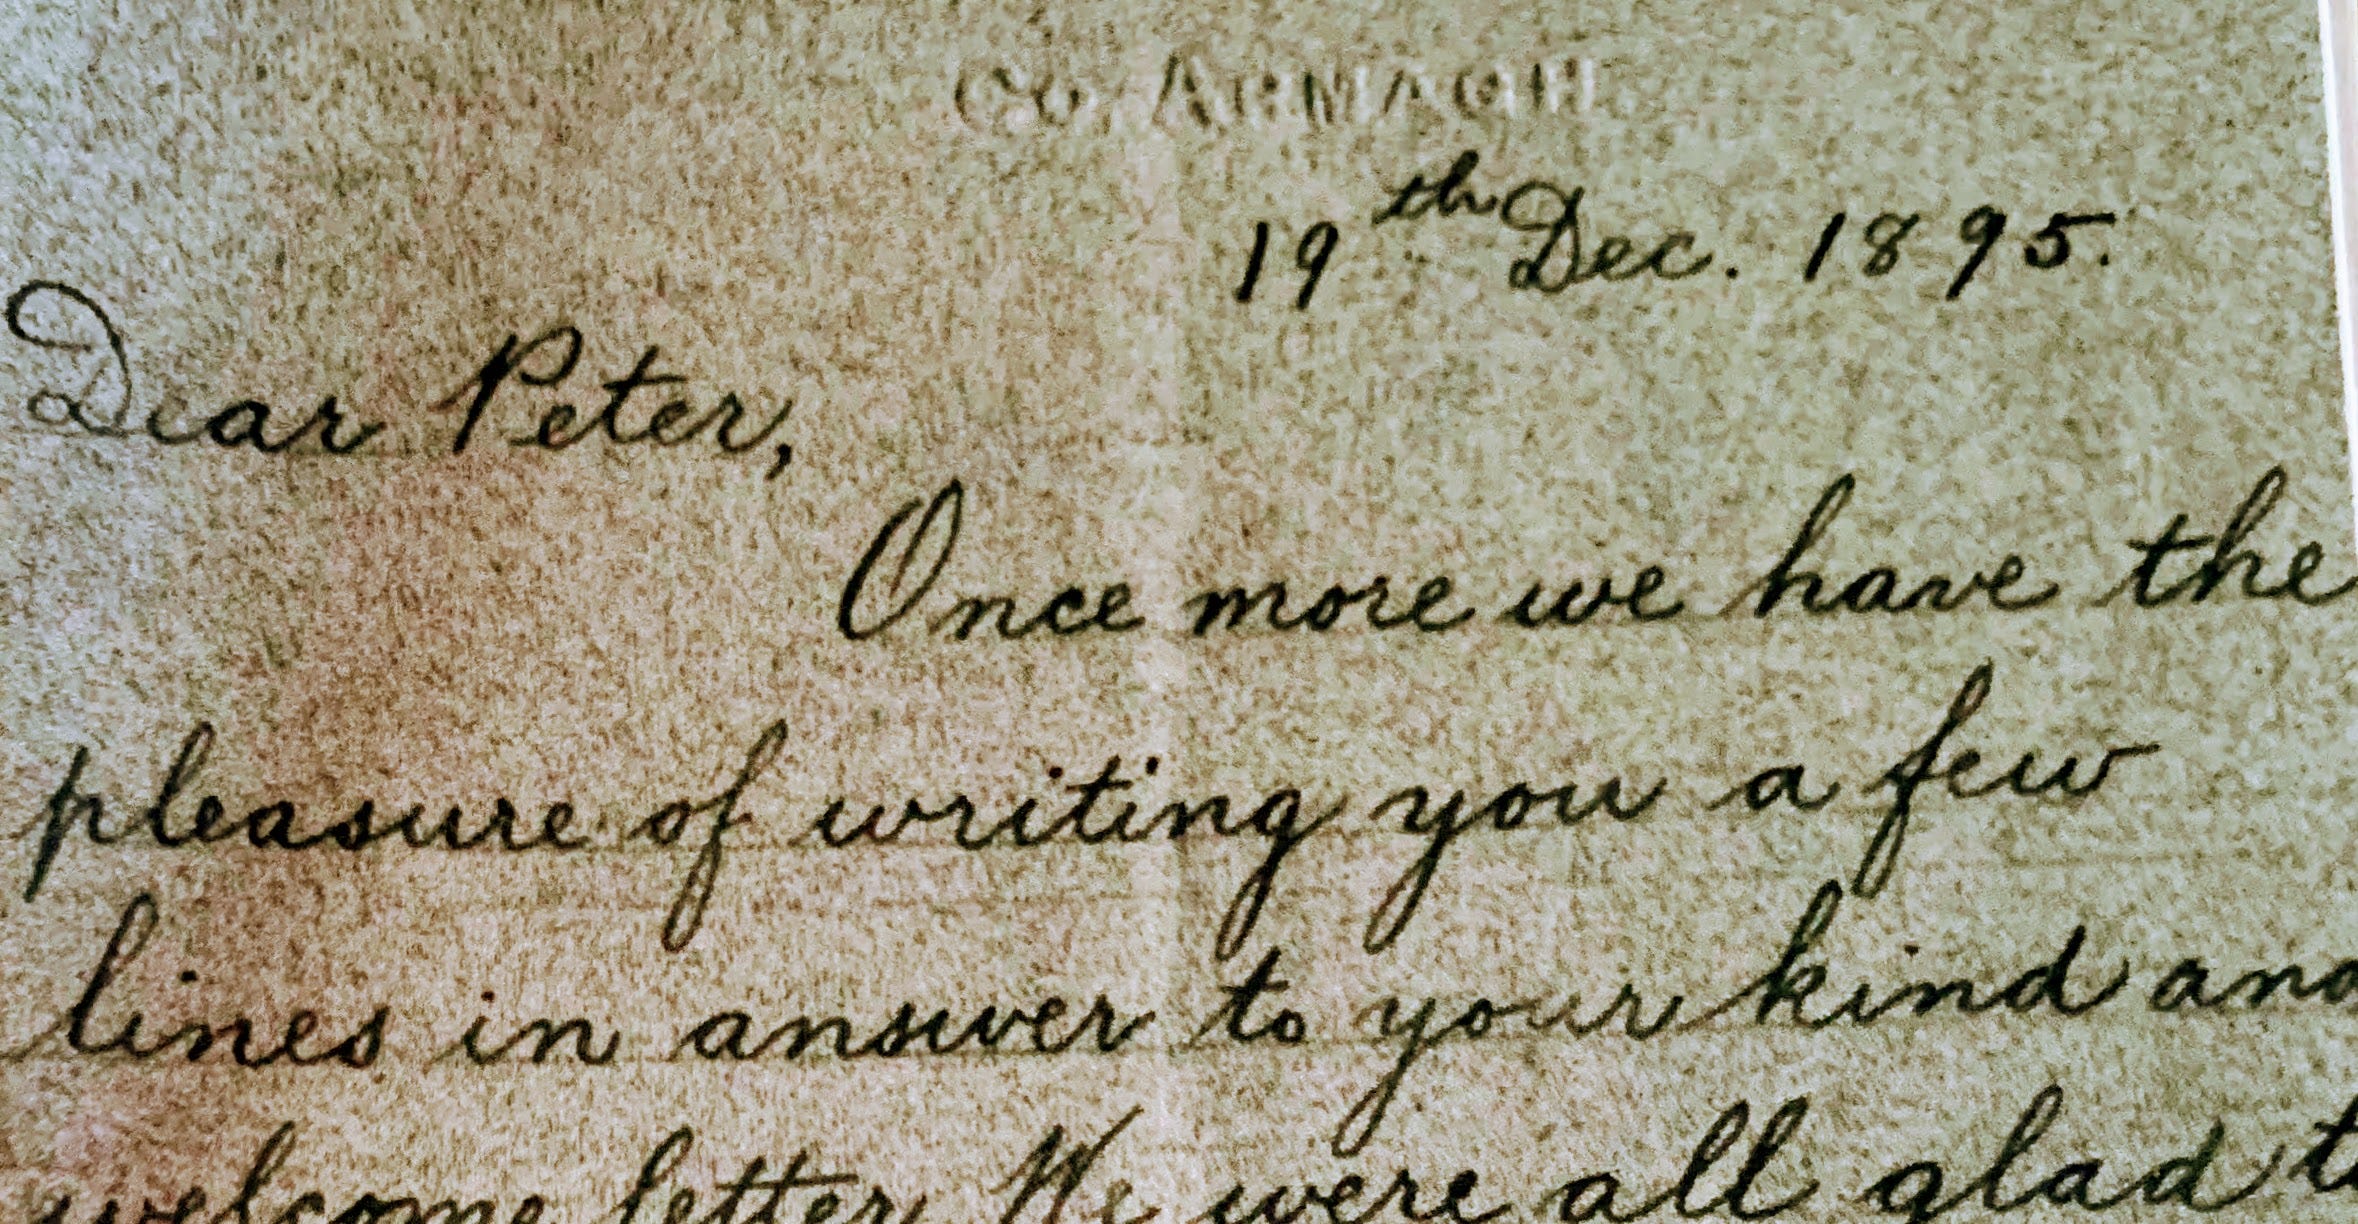 Co. ARMAGH
19th Dec. 1895.
Dear Peter,
Once more we have the
pleasure of writing you a few
lines in answer to your kind and
welcome letter. We were all glad to